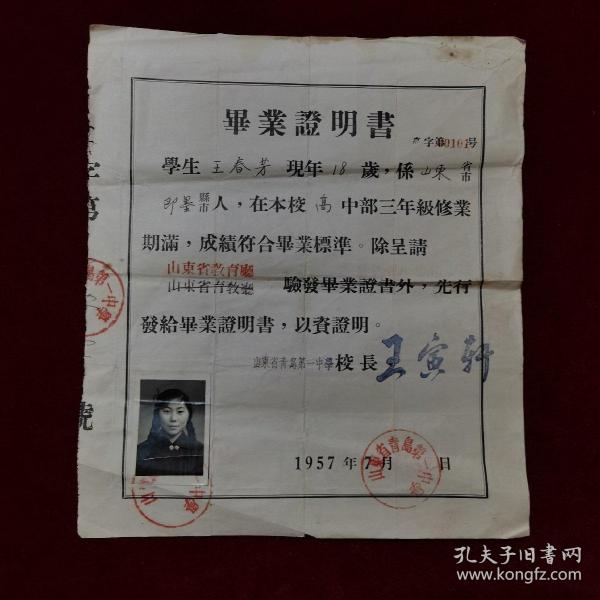 畢業證明書
字第00101号
學生王春芳現年18歲，係山東省市
即墨縣市人，在本校高中部三年級修業
期滿，成績符合畢業標準。除呈請
山東省教育廳
山東省育教廳 驗發畢業證書外，先行
發給畢業證明書，以資證明。
山東省青島第一中學校長王寅軒
1957年7月 日
山東省青島第一中學
島第一中學
中學
號
孔夫子旧书网
www.kongfz.com